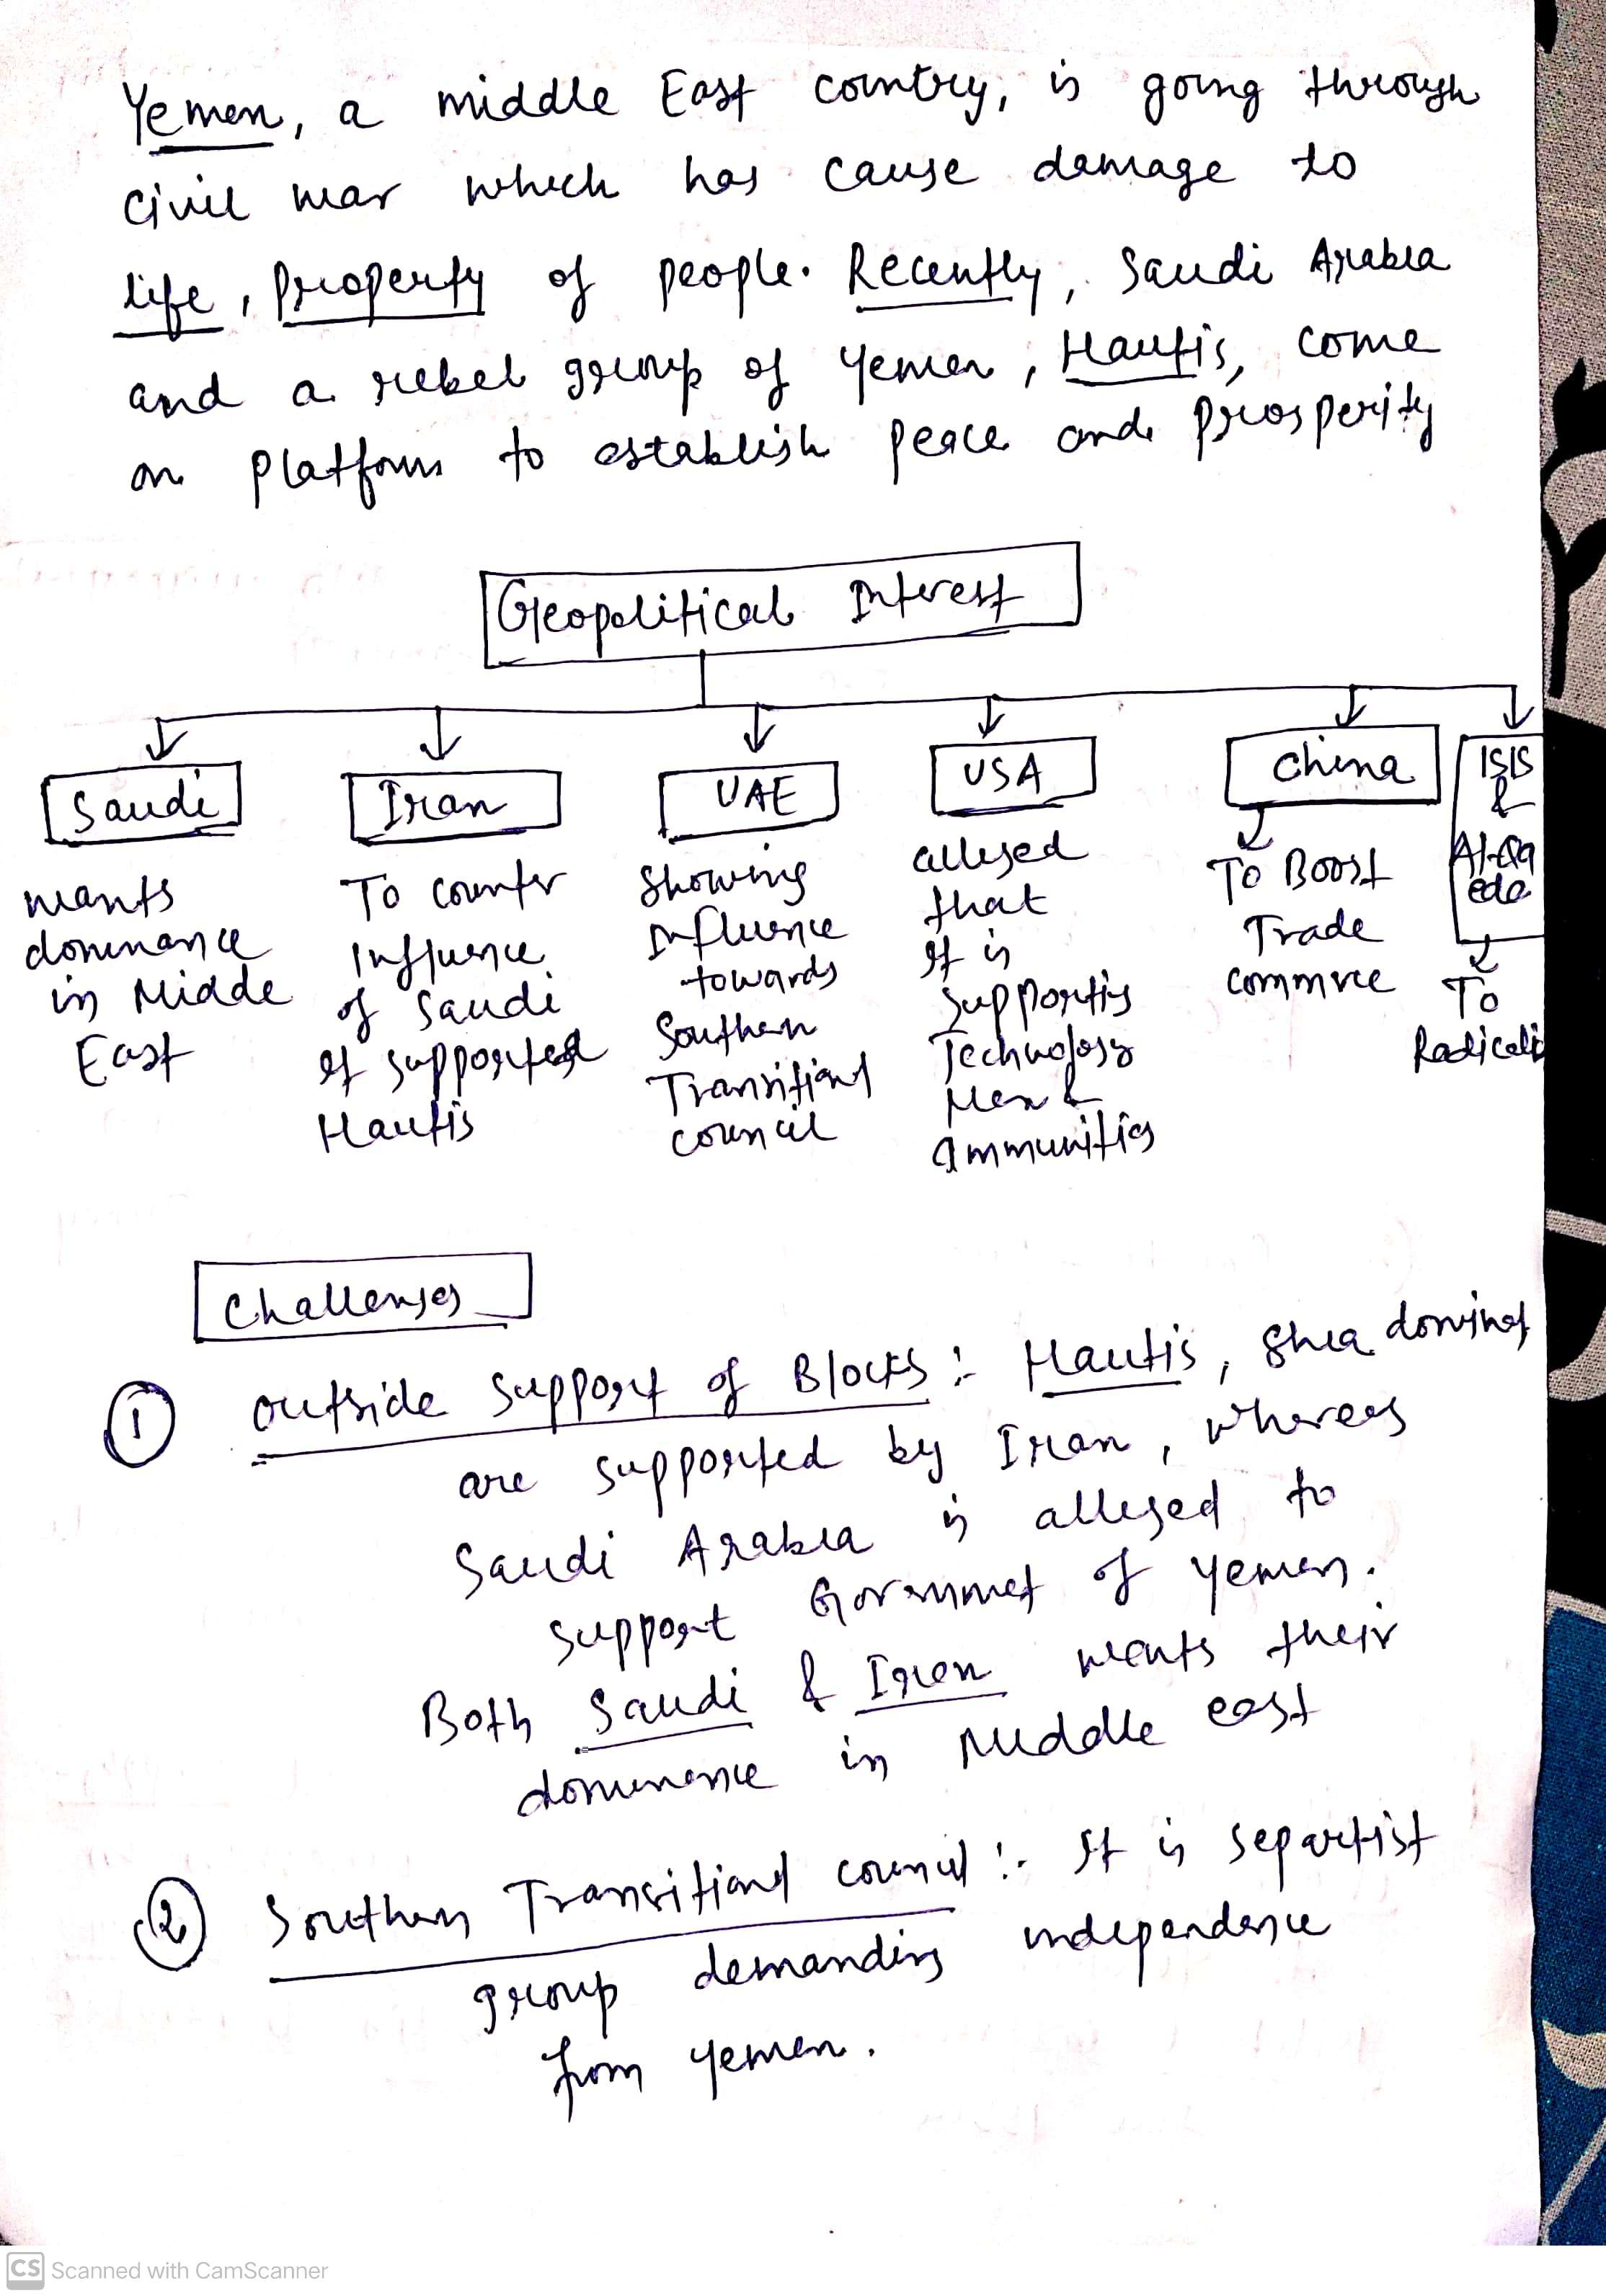 Yemen, a middle East country, is going through
civil war which has cause damage to
life, Property of people. Recently, Saudi Arabia
and a rebel group of Yemen, Hautis, come
on Platform to establish peace and prosperity
Geopolitical Interest
Saudi
wants
dominance
in Midde
East
Iran
To counter
Influence
of Saudi
It supported
Hautis
UAE
Showing
Influence
towards
Southern
Transitional
council
USA
alleged
that
It is
Supporting
Technology
Men &
ammunitios
China
To Boost
Trade
commrce
ISIS
&
Al-Qa
eda
To
Challenges
1 outside support of Blocks :- Hautis, Shia dominat
are supported by Iran, whereas
Saudi Arabia is alleged to
support Government of Yemen.
Both Saudi & Iran wants their
dominance in Middle east
2 Southern Transitional council :- It is sepratist
group demanding independence
from Yemen.
CS Scanned with CamScanner